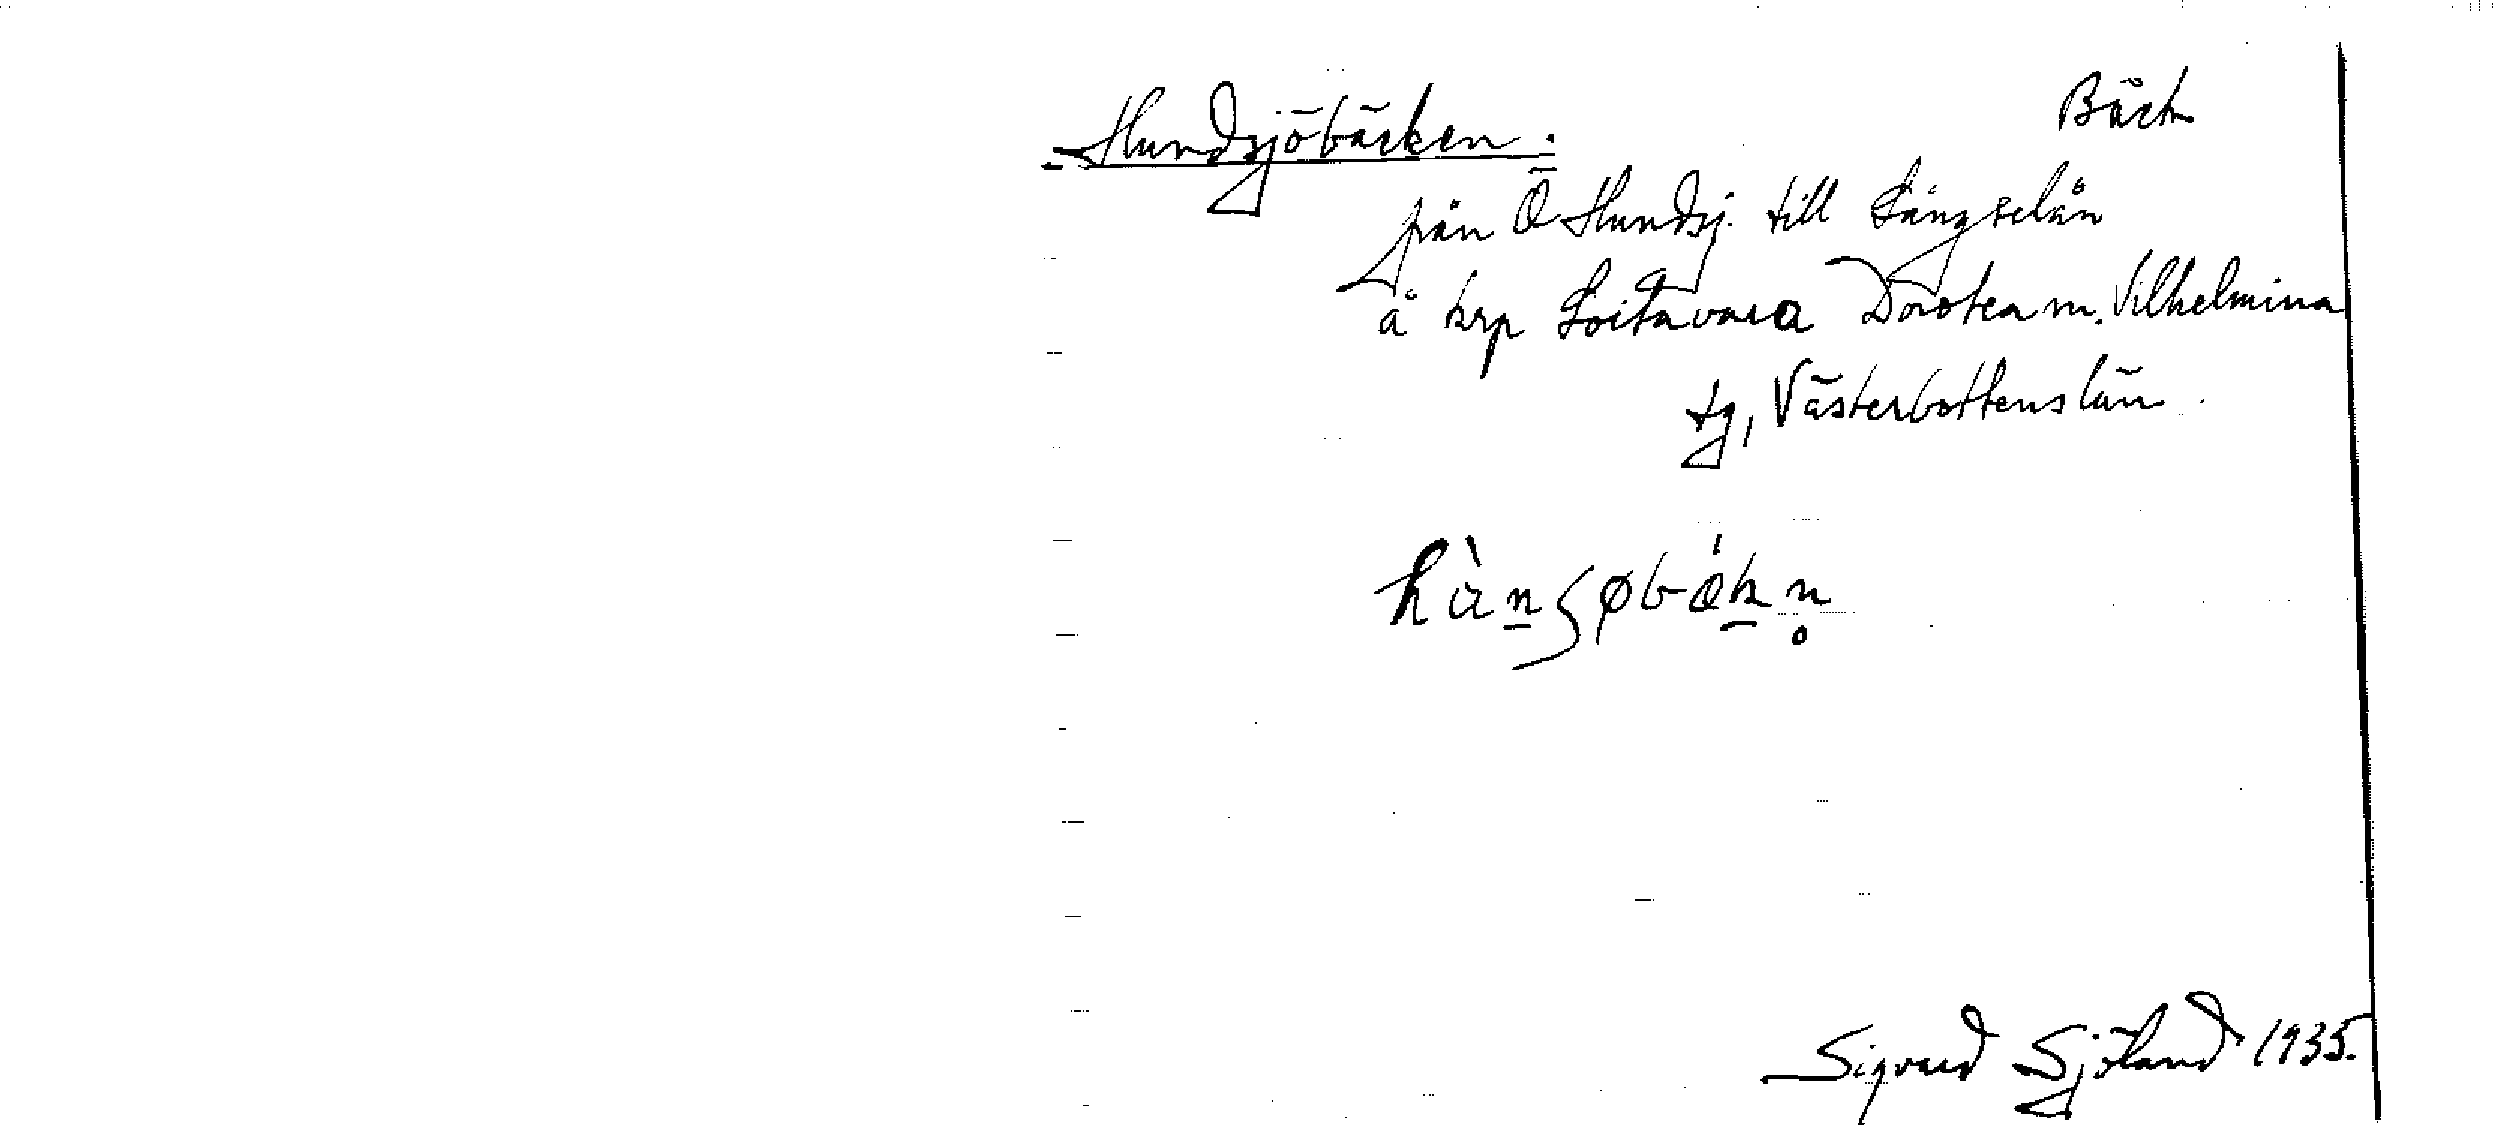 Hundsjöbäcken. Bäck
från Ö Hundsj. till Långselån
å krp Loitavara Dorotea m. Vilhelmina
tg, Västerbottens län.
Sigurd Sjöland 1935.